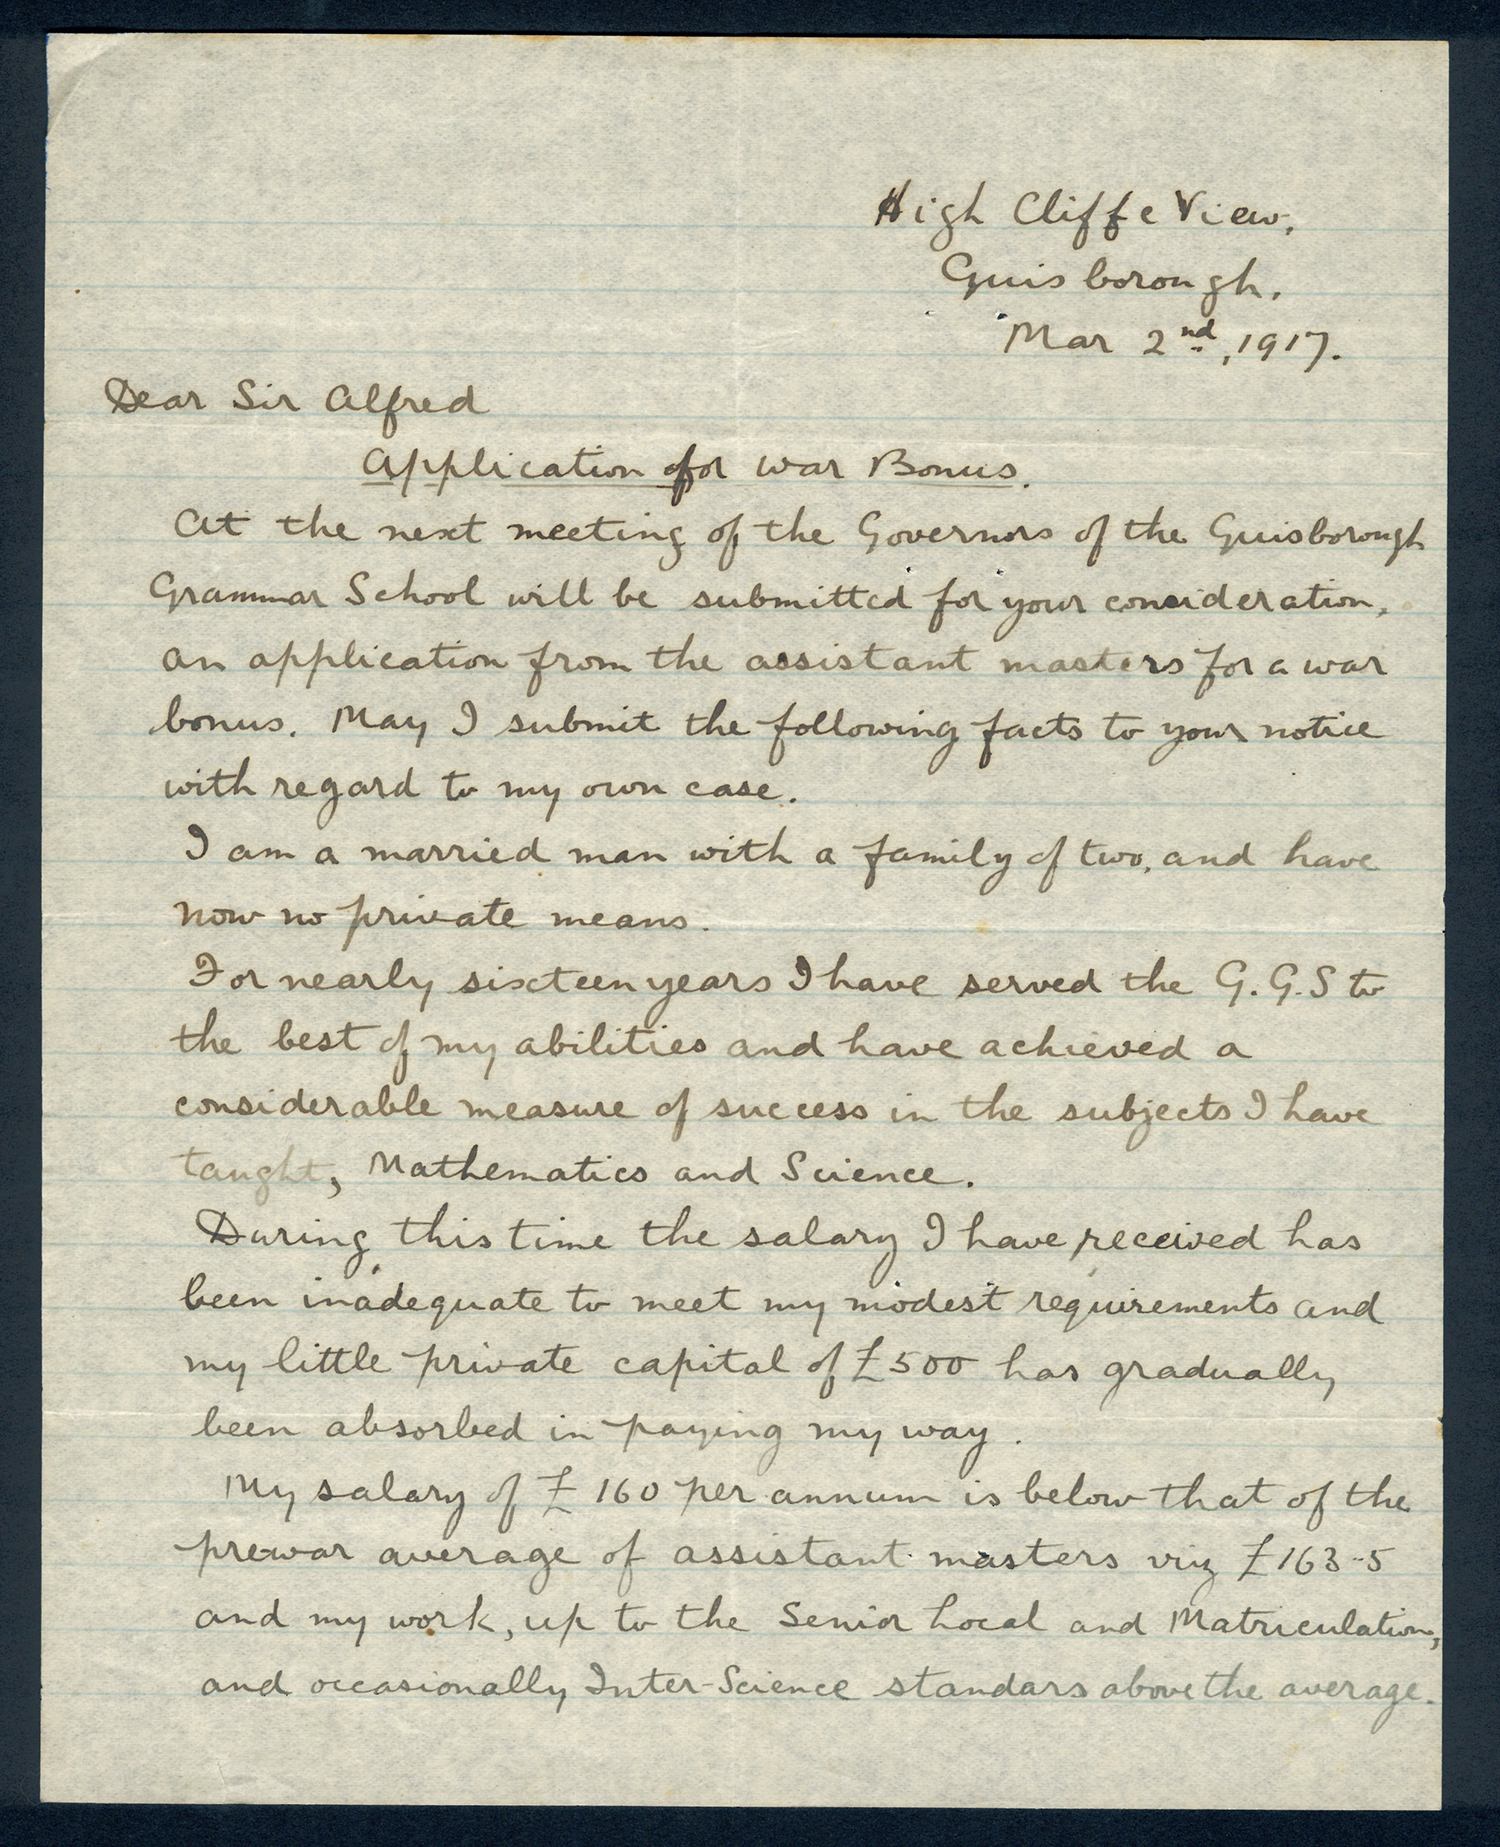 High Cliffe View,
Guisborough.
Mar 2nd, 1917.
Dear Sir Alfred
Application for war Bonus.
At the next meeting of the Governors of the Guisborough
Grammar School will be submitted for your consideration,
an application from the assistant masters for a war
bonus. May I submit the following facts to your notice
with regard to my own case.
I am a married man with a family of two, and have
now no private means.
For nearly sixteen years I have served the G.G.S to
the best of my abilities and have achieved a
considerable measure of success in the subjects I have
taught, Mathematics and Science.
During this time the salary I have received has
been inadequate to meet my modest requirements and
my little private capital of £500 has gradually
been absorbed in paying my way.
My salary of £160 per annum is below that of the
prewar average of assistant masters viz £163-5
and my work, up to the Senior Local and Matriculation,
and occasionally Inter-Science standars above the average.